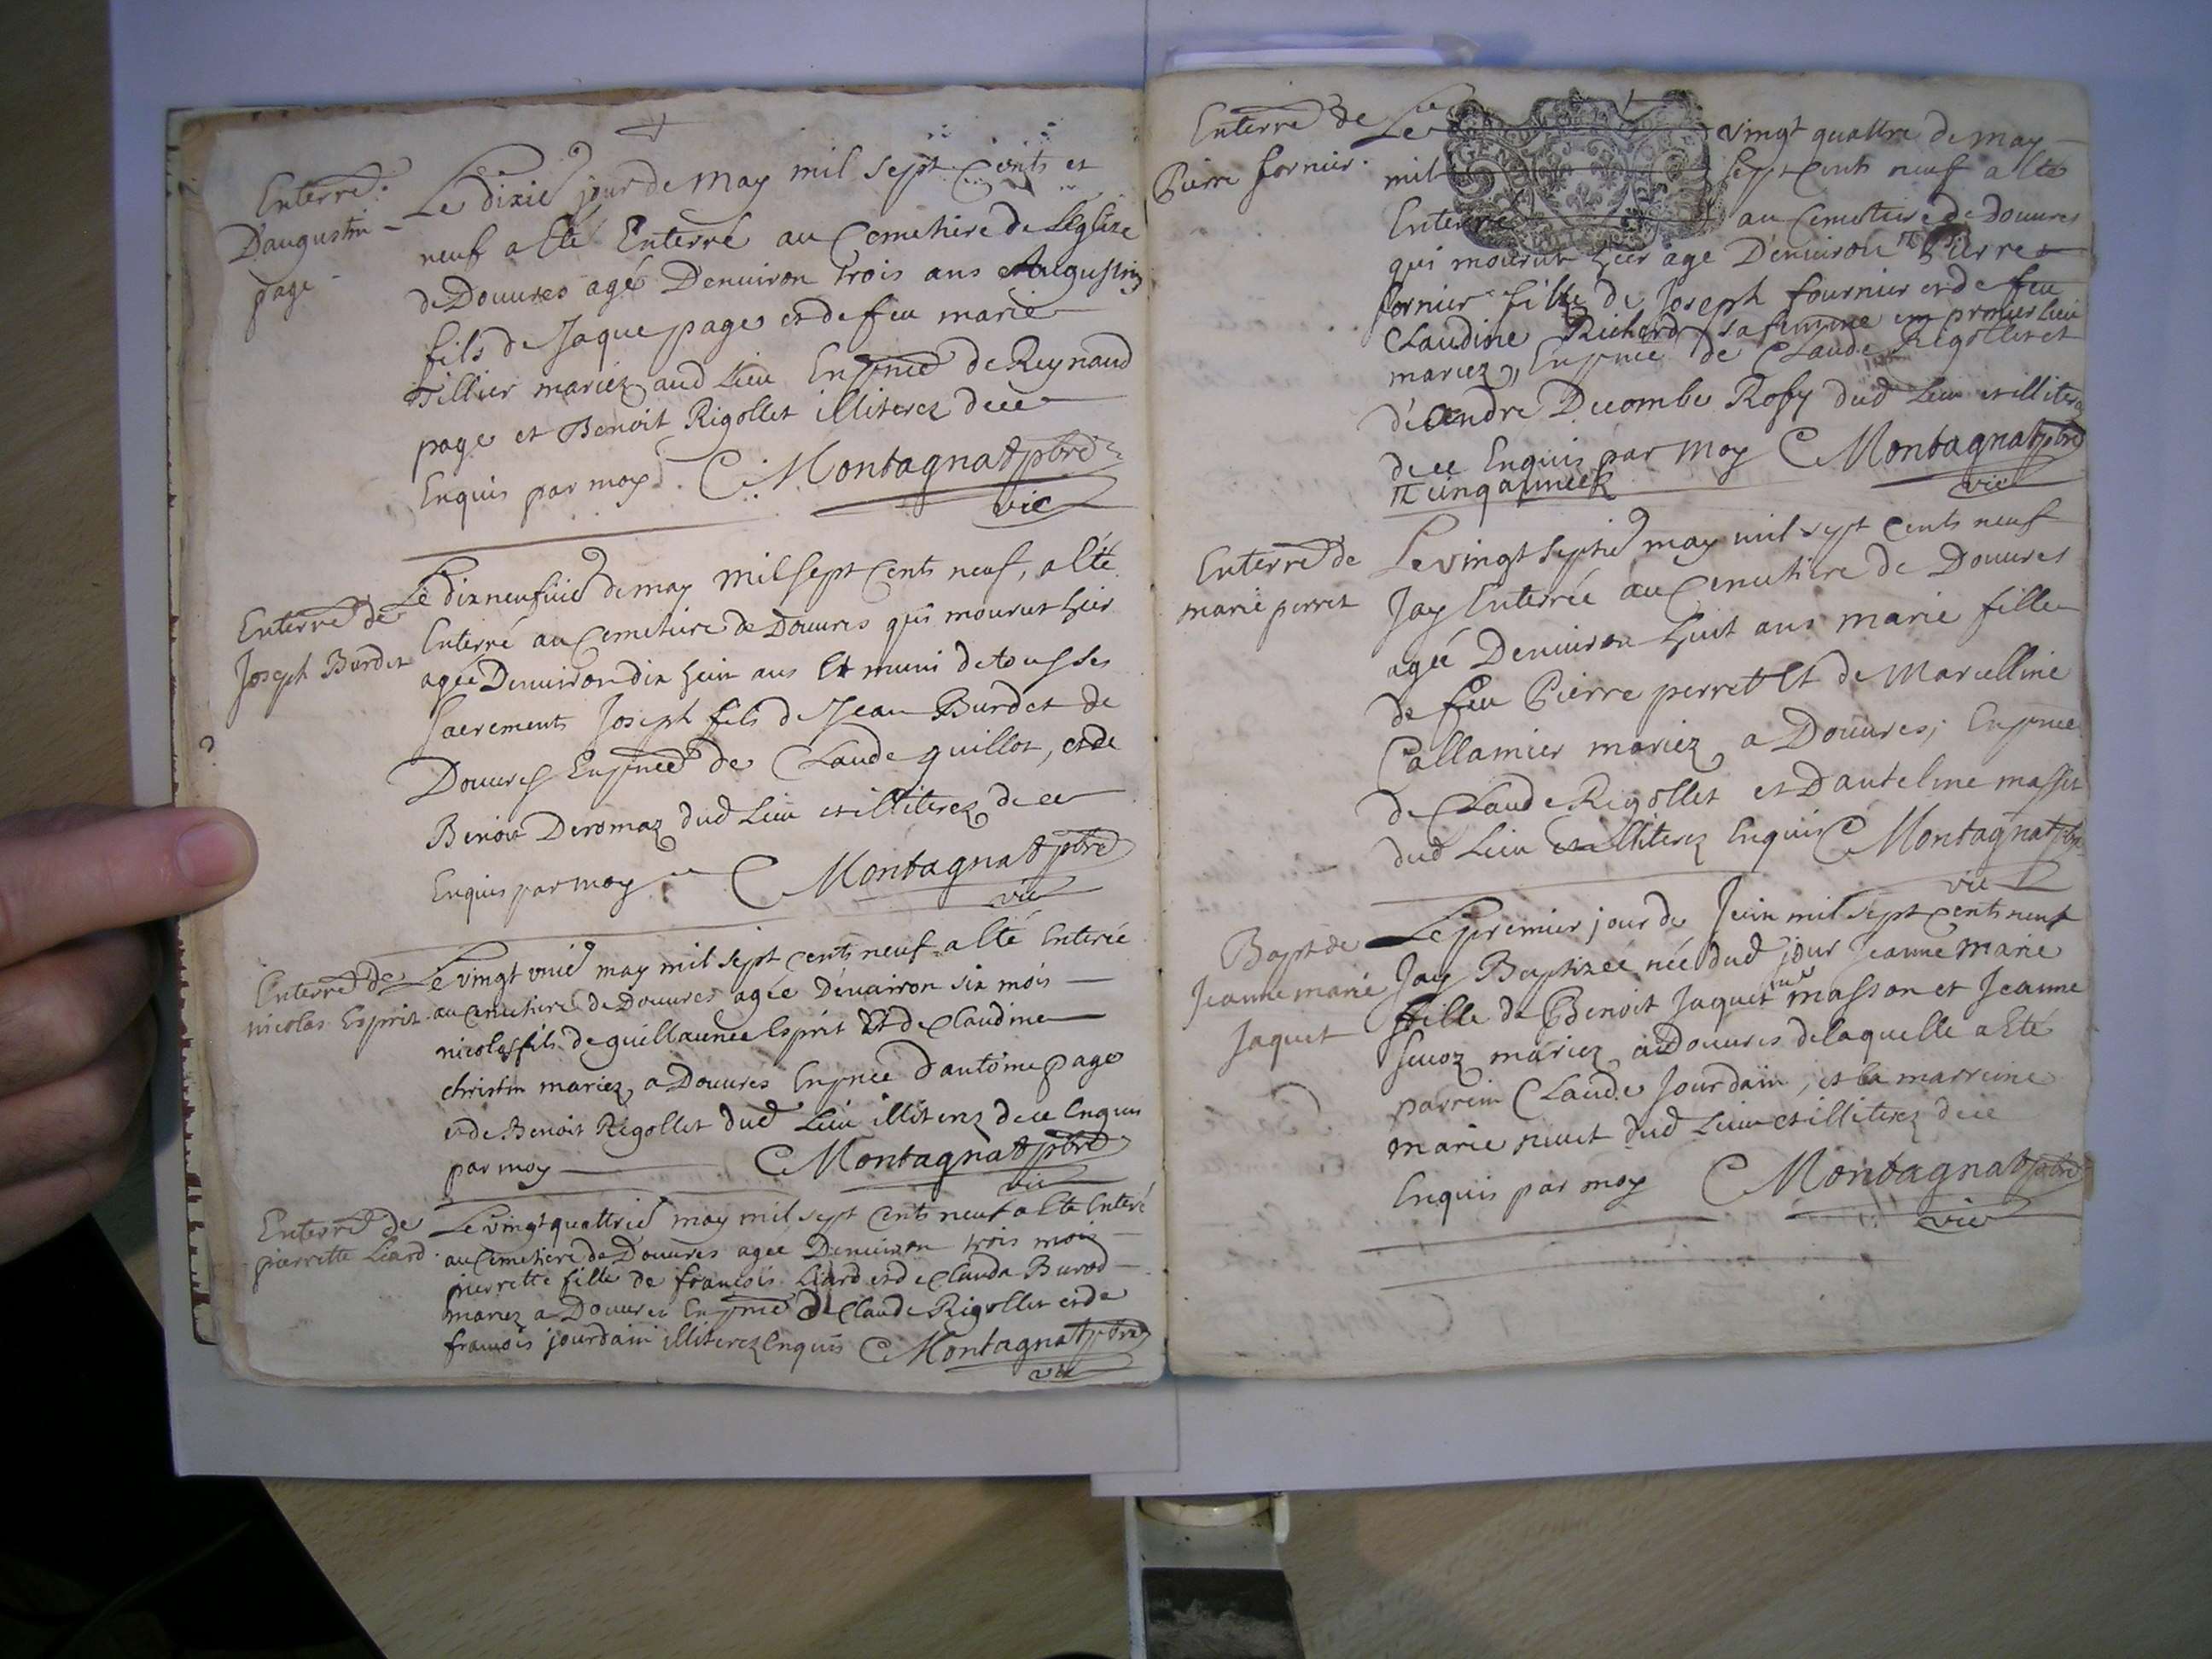 Enterré
D'augustin
page
Le dixie jour de may mil sept cents et
neuf a été Enterré au Cemetiere de L'eglize
de Douures agé D'enuiron trois ans Augustin
fils de Jaque page et de feu marie
Tillier mariez aud Lieu En pnce de Reynaud
page et Benoit Rigollet illiterez de ce
Enquis par moy C Montagnat ptre
vic
Enterré de
Joseph Burdet
Le dixneufuie de may mil sept cents neuf, a été
Enterré au Cemetiere de Douures qui mourut hier
agée D'enuiron dix huit ans Et muni de tous ses
sacrements Joseph fils de Jean Burdet de
Douures En pnce de Claude guillot, et de
Benoit Deromaz dud Lieu et illiterez de ce
Enquis par moy C Montagnat ptre
vic
Enterré de
nicolas Esprit
Le vingt unie may mil sept cents neuf a été Enterée
au cemetiere de Douures agée D'enuiron six mois
nicolas fils de guillaume Esprit Et de Claudine
christin mariez a Douures En pnce d'antoine page
et de Benoit Rigollet dud Lieu illiterez de ce Enquis
par moy C Montagnat ptre
vic
Enterré de
pierrette Liard
Le vingt quattrie may mil sept cents neuf a été Enteré
au Cemetiere de Douures agée D'enuiron trois mois
pierrette fille de francois Liard et de Clauda Burod
mariez a Douures En pnce de Claude Rigollet et de
francois jourdain illiterez Enquis C Montagnat ptre
vic
Enterré de
Pierre fornier
Le vingt quattre de may
mil sept cents neuf a été
Enterré au Cemetiere de Douures
qui mourut hier agé D'enuiron Pierre
fornier fils de Joseph fournier et de feu
Claudine Richard sa femme en premier lieu
mariez, En pnce de Claude Rigollet et
d'andre Decombe Rosy dud Lieu et illiterez
de ce Enquis par moy C Montagnat ptre
cinq annees vic
Enterré de
marie perret
Le vingt septie may mil sept cents neuf
Jay Enterrée au Cemetiere de Douures
agée D'enuiron huit ans marie fille
de feu Pierre perret Et de Marcelline
Callamier mariez a Douures; En pnce
de Claude Rigollet et D'anteline massit
dud Lieu et illiterez Enquis C Montagnat ptre
vic
Bapt de
Jeanne marie
Jaquet
Le premier jour de Juin mil sept cents neuf
Jay Baptizée née dud jour Jeanne Marie
fille de Benoit Jaquet me masson et Jeanne
Seuoz mariez a Douures de laquelle a Eté
parrein Claude Jourdain, et la marreine
marie nuet dud Lieu et illiterez de ce
Enquis par moy C Montagnat ptre
vic